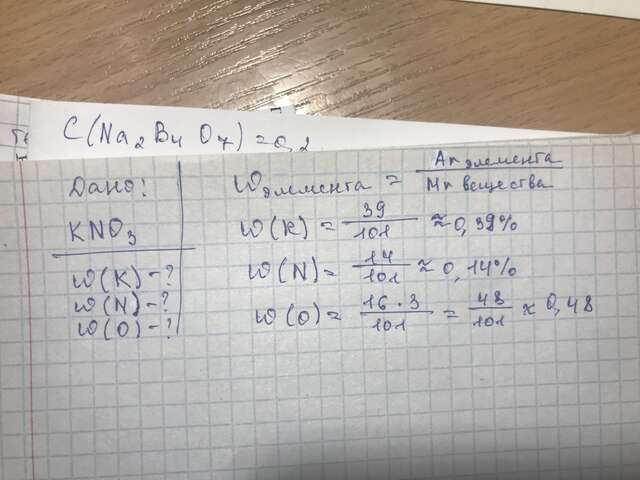 C(Na₂B₄O₇)=0,2
Дано:
KNO₃
ω(K)-?
ω(N)-?
ω(O)-?
ω элемента = Ar элемента / Mr вещества
ω(K) = 39/101 ≈ 0,39%
ω(N) = 14/101 ≈ 0,14%
ω(O) = 16·3/101 = 48/101 ≈ 0,48